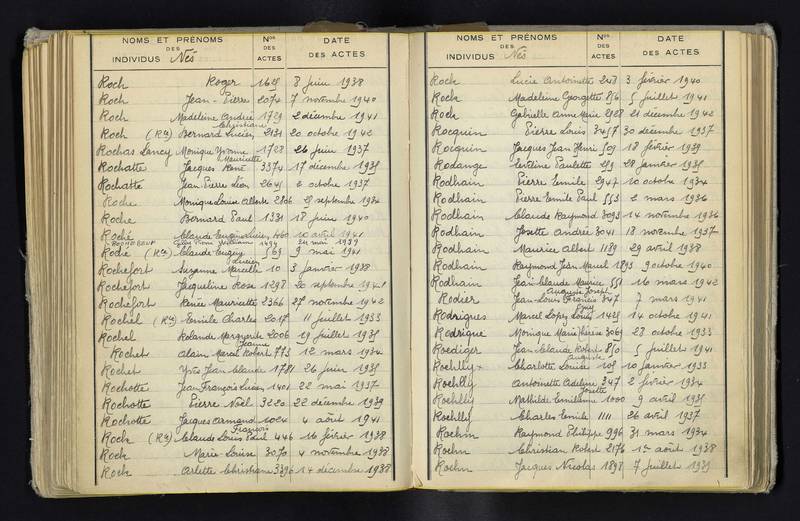 NOMS ET PRÉNOMS DES INDIVIDUS Nés
Nos DES ACTES
DATE DES ACTES
Roch Roger 1625 8 juin 1938
Roch Jean-Pierre 2074 7 novembre 1940
Roch Madeleine Andrée 1729 2 décembre 1941
Christiane
Roch (Rte) Bernard Lucien 2131 20 octobre 1942
Rochas Lancy Monique Yvonne 1728 26 juin 1937
Mauricette
Rochatte Jacques René 3374 17 décembre 1935
Rochatte Jean Pierre Léon 2645 6 octobre 1937
Roche Monique Louise Alberte 2806 25 septembre 1934
Roche Bernard Paul 1331 18 juin 1940
Roché Claude Eugène Lucien 1160 10 avril 1941
1494 24 mai 1939
Rodié (Rte) Claude Eugène 569 9 mai 1941
Lucien
Rochefort Suzanne Marcelle 10 3 janvier 1938
Rochefort Jacqueline Rose 1298 20 septembre 1941
Rochefort Renée Mauricette 2366 27 novembre 1942
Rochel (Rte) Emile Charles 2017 11 juillet 1933
Rochel Rolande Marguerite 2006 19 juillet 1935
Jeanne
Rochet Alain Marcel Robert 773 12 mars 1934
Rochet Yves Jean Claude 1781 26 juin 1935
Rochotte Jean François Lucien 1401 22 mai 1937
Rochotte Pierre Noël 3220 22 décembre 1939
Rochotte Jacques Armand 1024 4 août 1941
François
Rock (Rte) Claude Louis Paul 446 16 février 1938
Rock Marie-Louise 3070 4 novembre 1938
Rock Arlette Christiane 3396 14 décembre 1938
NOMS ET PRÉNOMS DES INDIVIDUS Nés
Nos DES ACTES
DATE DES ACTES
Rock Lucie Antoinette 248 3 février 1940
Rock Madeleine Georgette 856 5 juillet 1941
Rock Gabrielle Anne Marie 2928 21 décembre 1942
Rocquin Pierre Louis 3457 30 décembre 1937
Rocquin Jacques Jean Henri 509 18 février 1939
Rodange Eveline Paulette 259 28 janvier 1935
Rodhain Pierre Emile 2947 10 octobre 1934
Rodhain Pierre Emile Paul 553 2 mars 1936
Rodhain Claude Raymond 3093 14 novembre 1936
Rodhain Josette Andrée 3041 18 novembre 1937
Rodhain Maurice Albert 1189 29 avril 1938
Rodhain Raymond Jean Marcel 1893 9 octobre 1940
Rodhain Jean Claude Maurice 551 16 mars 1942
Auguste Joseph
Rodier Jean-Louis Francis 347 7 mars 1941
Rodrigues Marcel Lopez Louis 1425 14 octobre 1941
Rodrigue Monique Marie Thérèse 3069 28 octobre 1933
Roediger Jean Claude Robert 850 5 juillet 1941
Auguste
Roehlly Charlotte Louise 105 10 janvier 1933
Roehlly Antoinette Adeline 347 2 février 1934
Josette
Roehlly Mathilde Emilienne 1000 9 avril 1935
Roehlly Charles Emile 1111 26 avril 1937
Roehm Raymond Philippe 996 31 mars 1934
Roehm Christian Robert 2176 1er août 1938
Roehn Jacques Nicolas 1898 7 juillet 1939